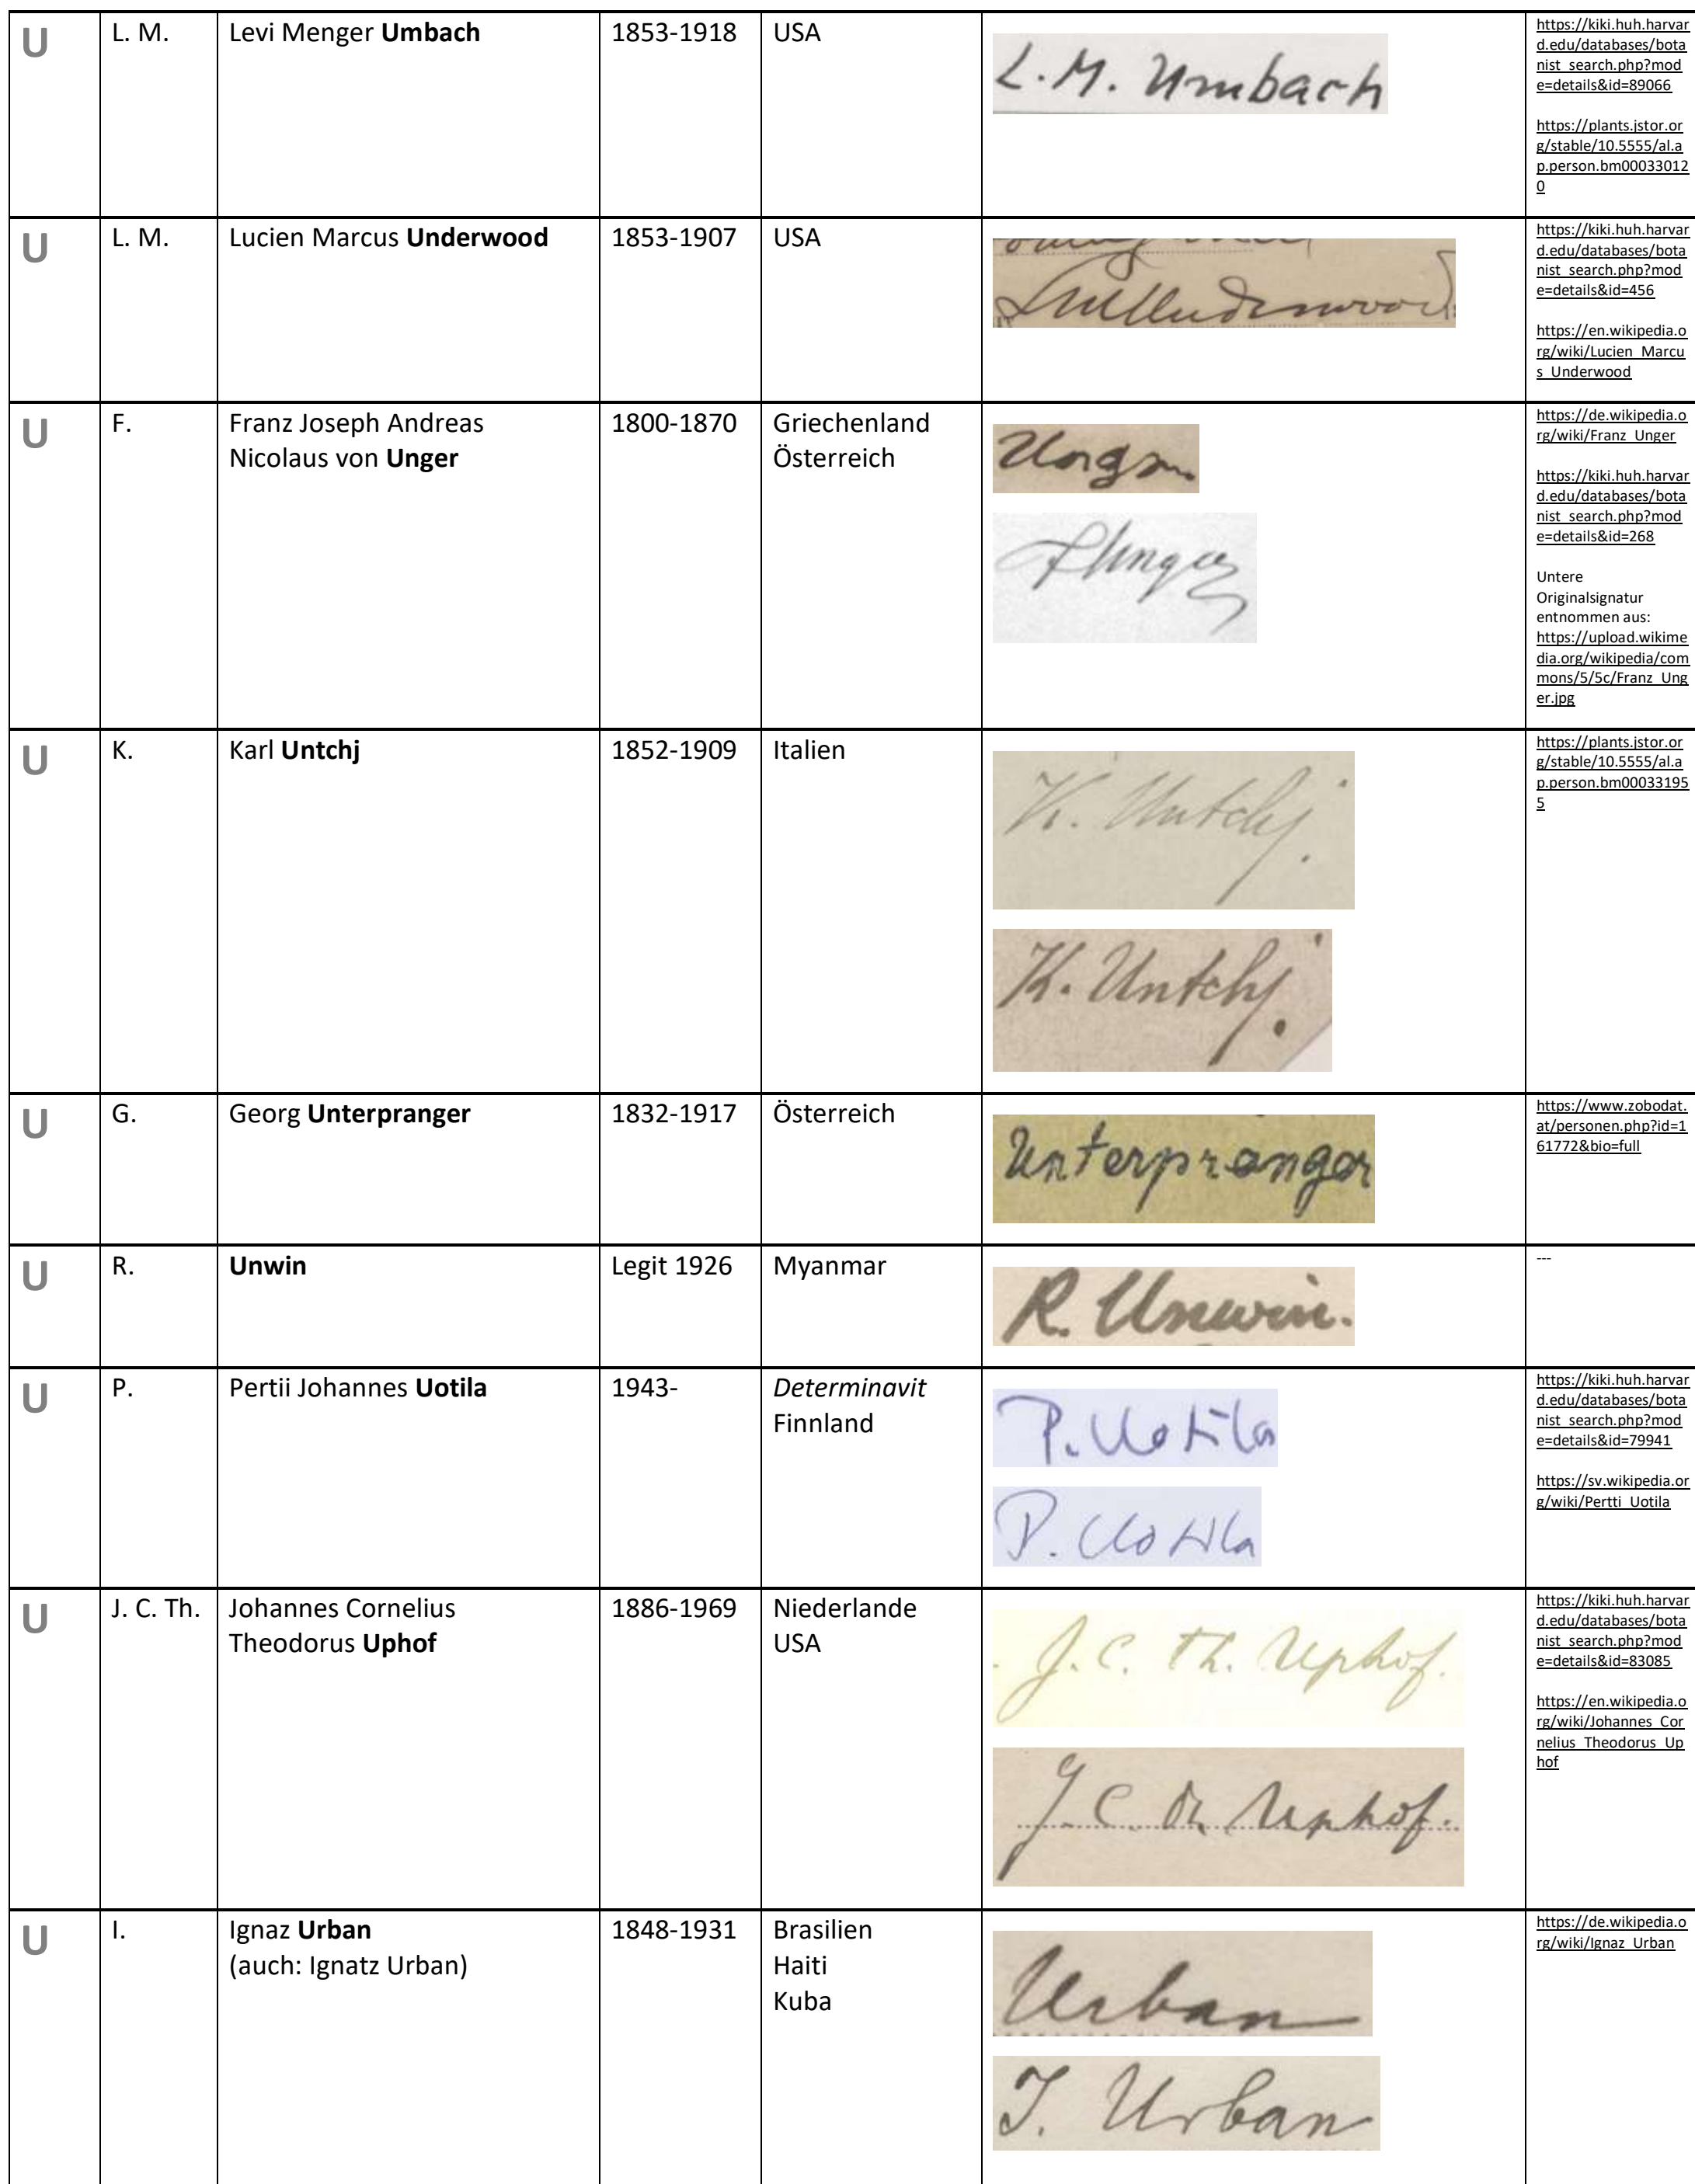 U L. M. Levi Menger Umbach 1853-1918 USA L. M. Umbach
https://kiki.huh.harvar
d.edu/databases/bota
nist_search.php?mod
e=details&id=89066
https://plants.jstor.or
g/stable/10.5555/al.a
p.person.bm00033012
0
U L. M. Lucien Marcus Underwood 1853-1907 USA
LMUnderwood
https://kiki.huh.harvar
d.edu/databases/bota
nist_search.php?mod
e=details&id=456
https://en.wikipedia.o
rg/wiki/Lucien_Marcu
s_Underwood
U F. Franz Joseph Andreas
Nicolaus von Unger
1800-1870
Griechenland
Österreich
Unger
FUnger
https://de.wikipedia.o
rg/wiki/Franz_Unger
https://kiki.huh.harvar
d.edu/databases/bota
nist_search.php?mod
e=details&id=268
Untere
Originalsignatur
entnommen aus:
https://upload.wikime
dia.org/wikipedia/com
mons/5/5c/Franz_Ung
er.jpg
U K. Karl Untchj 1852-1909 Italien
K. Untchj.
K. Untchj.
https://plants.jstor.or
g/stable/10.5555/al.a
p.person.bm00033195
5
U G. Georg Unterpranger 1832-1917 Österreich
Unterpranger
https://www.zobodat.
at/personen.php?id=1
61772&bio=full
U R. Unwin Legit 1926 Myanmar
R. Unwin.
---
U P. Pertii Johannes Uotila 1943-
Determinavit
Finnland
P. Uotila
P. Uotila
https://kiki.huh.harvar
d.edu/databases/bota
nist_search.php?mod
e=details&id=79941
https://sv.wikipedia.or
g/wiki/Pertti_Uotila
U J. C. Th. Johannes Cornelius
Theodorus Uphof
1886-1969
Niederlande
USA
J. C. Th. Uphof.
J. C. Th. Uphof.
https://kiki.huh.harvar
d.edu/databases/bota
nist_search.php?mod
e=details&id=83085
https://en.wikipedia.o
rg/wiki/Johannes_Cor
nelius_Theodorus_Up
hof
U I. Ignaz Urban
(auch: Ignatz Urban)
1848-1931
Brasilien
Haiti
Kuba
Urban
I. Urban
https://de.wikipedia.o
rg/wiki/Ignaz_Urban